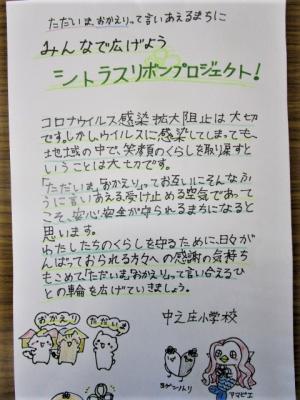 「ただいま、おかえり」って言いあえるまちに
みんなで広げよう
シトラスリボンプロジェクト!
コロナウイルス感染拡大阻止は大切
です。しかし、ウイルスに感染してしまっても、
地域の中で、笑顔のくらしを取り戻すと
いうことは大切です。
「ただいま。」「おかえり。」ってお互いにそんなふ
うに言いあえる、受け止める空気であって
こそ、安心・安全が守られるまちになると
思います。
わたしたちのくらしを守るために、日々が
んばっておられる方々への感謝の気持ち
もこめて「ただいま。」「おかえり。」って言い合えるひ
との輪を広げていきましょう。
中之庄小学校
おかえり
ただいま
ヨゲンノトリ
アマビエ